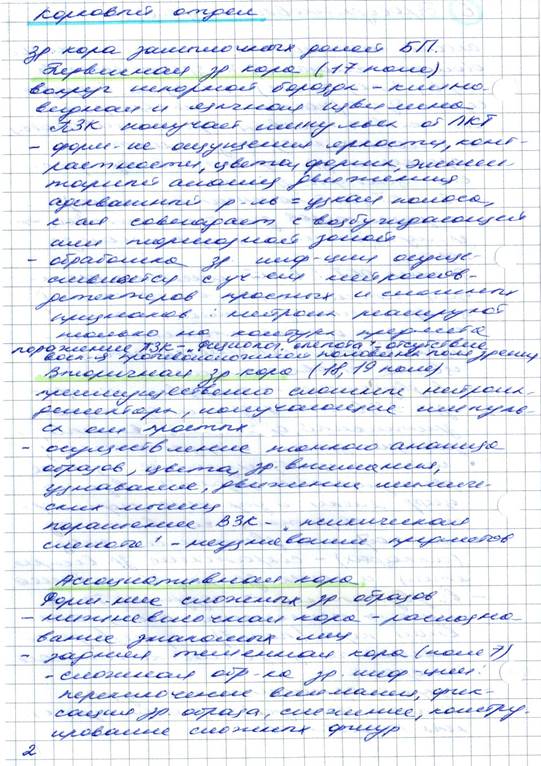 Корковый отдел
Зр. кора затылочных долей БП.
Первичная зр кора (17 поле)
вокруг шпорной борозды – клино-
видная и язычная извилина
ПЗК получает импульсы от ЛКТ
– форм-ие ощущения яркости, конт-
растности, цвета, формы, элемен-
тарный анализ движения
адекватный р-ль = узкая полоса,
к-ая совпадает с возбуждающей
или тормозной зоной
– обработка зр инф-ции осуще-
ствляется с уч-ем нейронов-
детекторов простых и сложных
принципов: нейроны реагируют
только на контуры предмета
поражение ПЗК – "физиолог. слепота", отсутствие
восп-я противоположной половины поля зрения
Вторичная зр кора (18, 19 поле)
преимущественно сложные нейроны-
детекторы, получающие импуль-
сы от простых
– осуществление тонкого анализа
образов, цвета, зр. внимания,
узнавание, движении мимиче-
ских мышц
поражение ВЗК – "психическая
слепота" – неузнавание предметов
Ассоциативная кора
Форм-ние сложных зр образов
– нижневисочная кора – распозна-
вание знакомых лиц
– задняя теменная кора (поле 7)
– сложная обр-ка зр. инф-ции:
переключение внимания, фик-
сация зр. образа, слежение, констру-
ирование сложных фигур
2